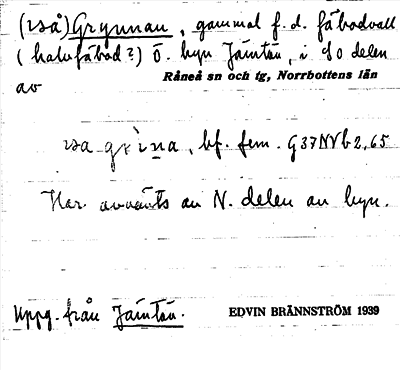 (rså) Grynnan, gammal f.d. fäbodvall
(halvfäbod?) Ö. byn Jämtön, i SO delen
av Råneå sn och tg, Norrbottens län
rsa grina, bf. fem. G37NVb2,65
Har använts av N. delen av byn.
Uppg. från Jämtön. EDVIN BRÄNNSTRÖM 1939